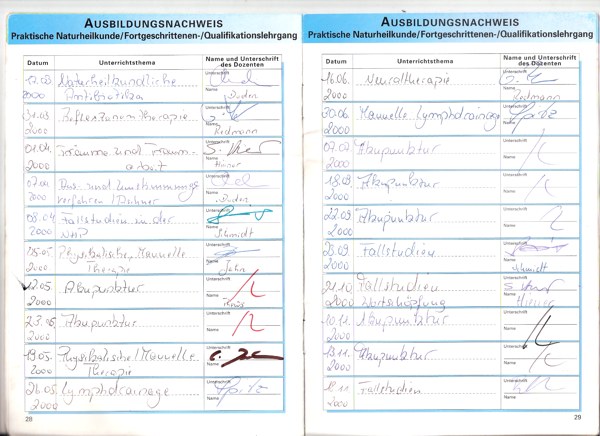 AUSBILDUNGSNACHWEIS
Praktische Naturheilkunde/Fortgeschrittenen-/Qualifikationslehrgang
Datum Unterrichtsthema Name und Unterschrift des Dozenten
2000 Naturheilkundliche Unterschrift
Antibiotika Name
31.03 Reflexzonentherapie Unterschrift
2000 Name Redmann
01.04. Träume und Traum- Unterschrift
2000 arbeit Name
07.04 Aus- und Umstimmungs Unterschrift
2000 verfahren Name
08.04 Fallstudien in der Unterschrift
2000 NHP Name Schmidt
Physikalische/Manuelle Unterschrift
2000 Therapie Name Jahn
12.05 Akupunktur Unterschrift
2000 Name
23.05 Akupunktur Unterschrift
2000 Name
19.05. Physikalische/Manuelle Unterschrift
2000 Therapie Name
26.05. Lymphdrainage Unterschrift
2000 Name
28
AUSBILDUNGSNACHWEIS
Praktische Naturheilkunde/Fortgeschrittenen-/Qualifikationslehrgang
Datum Unterrichtsthema Name und Unterschrift des Dozenten
16.06. Neuraltherapie Unterschrift
2000 Name Redmann
30.06 Manuelle Lymphdrainage Unterschrift
2000 Name
07.07 Akupunktur Unterschrift
2000 Name
18.09. Akupunktur Unterschrift
2000 Name
22.09 Akupunktur Unterschrift
2000 Name
Fallstudien Unterschrift
2000 Name Schmidt
21.10 Fallstudien Unterschrift
2000 Name
10.11. Akupunktur Unterschrift
2000 Name
Akupunktur Unterschrift
2000 Name
Fallstudien Unterschrift
2000 Name
29